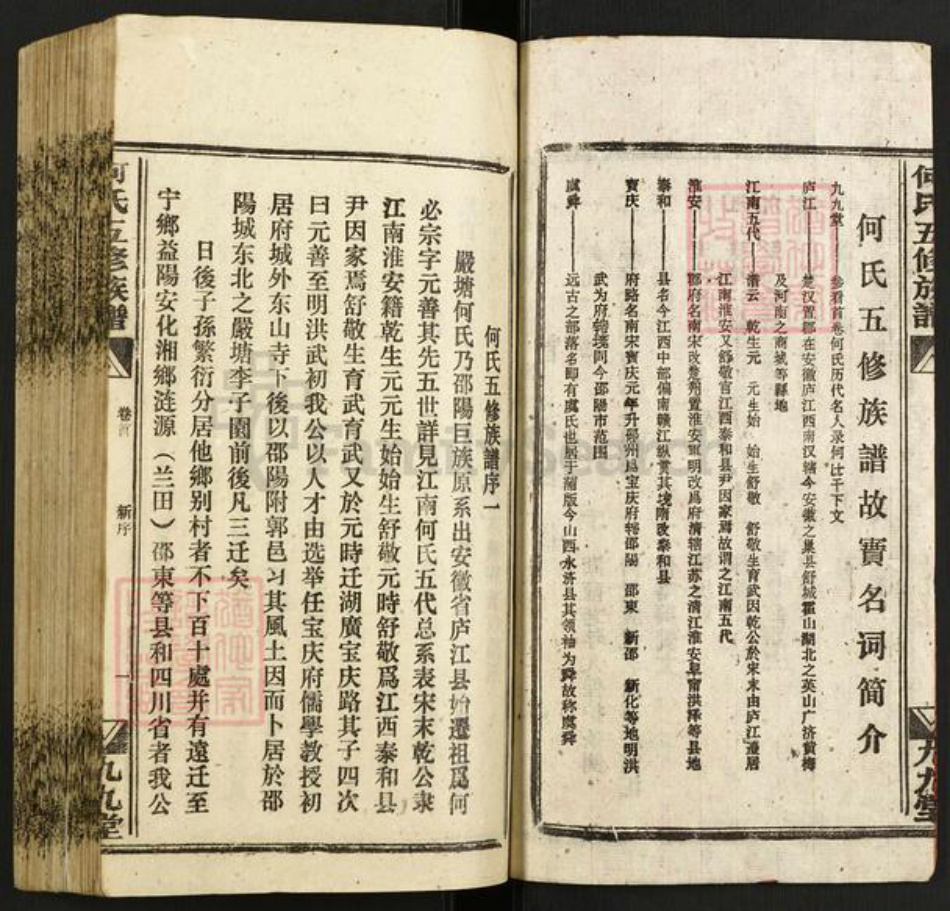 何氏五修族譜
九九堂
何氏五修族譜故實名词简介
九九堂——參看首卷何氏历代名人录何比干下文
庐江——楚汉置郡在安徽庐江西南汉辖今安徽之巢县舒城霍山湖北之英山广济黄梅
及河南之商城等縣地
江南五代——潛云 乾生元 元生始 始生舒敬 舒敬生育武因乾公於宋末由庐江遷居
江南淮安又舒敬官江西泰和县尹因家焉故谓之江南五代
淮安——郡府名南宋改楚州置淮安軍明改爲府清辖江苏之清江淮安阜甯洪泽等县地
泰和——县名今江西中部偏南赣江纵贯其境隋改泰和县
寳庆——府路名南宋寳庆元年升邵州爲宝庆府辖邵陽 邵東 新邵 新化等地明洪
武为府辖境同今邵陽市范围
虞舜——远古之部落名即有虞氏也居于蒲版今山西永济县其领袖为舜故称虞舜
何氏五修族譜序一
嚴塘何氏乃邵陽巨族原系出安徽省庐江县始遷祖爲何
必宗字元善其先五世詳見江南何氏五代总系表宋末乾公隶
江南淮安籍乾生元元生始始生舒敬元時舒敬爲江西泰和县
尹因家焉舒敬生育武育武又於元時迁湖廣宝庆路其子四次
曰元善至明洪武初我公以人才由选举任宝庆府儒學教授初
居府城外东山寺下後以邵陽附郭邑习其風土因而卜居於邵
陽城东北之嚴塘李子園前後凡三迁矣
日後子孫繁衍分居他鄉别村者不下百十處并有遠迁至
宁鄉益陽安化湘鄉涟源（兰田）邵東等县和四川省者我公
何氏五修族譜
卷首
新序
一
九九堂